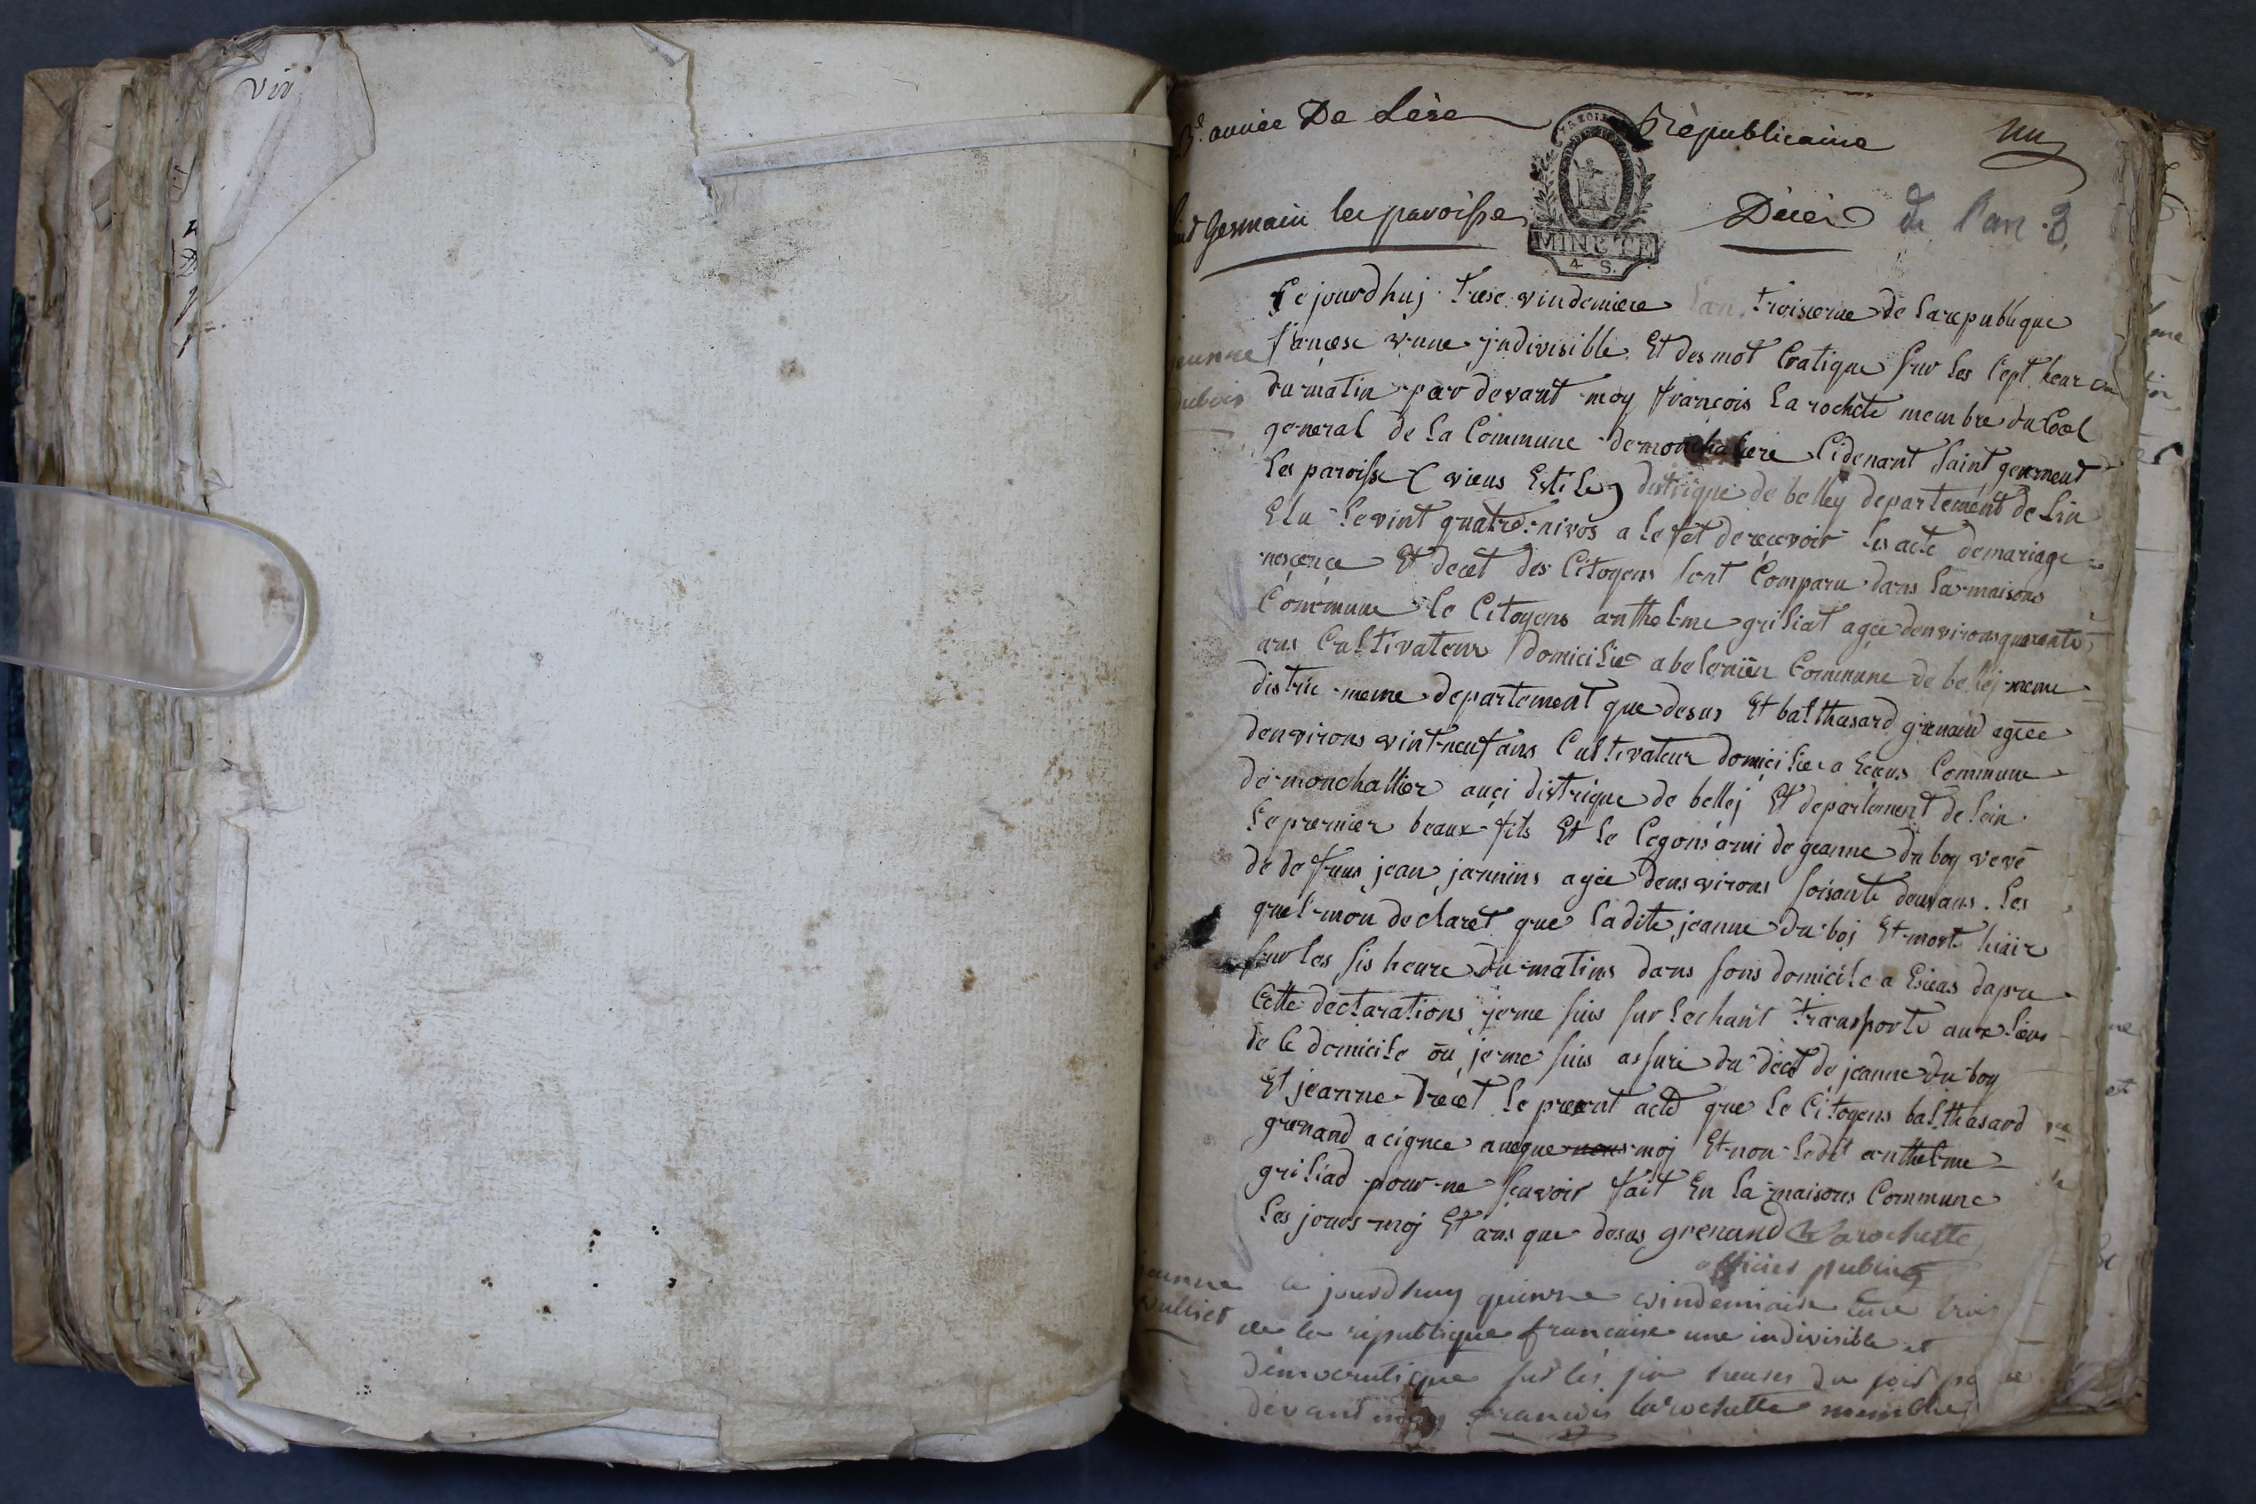 3e. année De Lère Républicaine un
Germain les paroisse Décès de l'an 3
MINUTE
4 S.
Ce jourdhuj trese vindemiere lan troisieme de la republique
jeanne
dubois
francese une jndivisible Et desmot Cratique sur les sept heur
du matin par devant moy françois Larochete membre du Coel
general de la Commune de monchaliere Cidenant saint germent
les paroisse distrique de belley departement de Lin
Elu le vint quatre nivos a le fet de recevoir les acte de mariage
nescence Et decet des Citoyens sont Comparu dans la maisons
Commune le Citoyens anthelme griliat agée denvirons quarente
ans Cultivateur domicilie a Commune de bellej meme
distric meme departement que desus Et balthasard grenand agée
denvirons vint neuf ans Cultivateur domicilie a Commune
de monchallier auci distrique de bellej Et departement de lein
le premier beaux fils Et le Cegons ami de jeanne du boy vevé
de defuns jean jannins agée dens virons soisante deux ans. les
quel mon declaret que la dite jeanne du boj Et mort hiair
sur les sis heure du matins dans sons domicile a dapre
Cette declarations je me suis sur le chant transporte aux lieu
de Ce domicile ou je me suis assuré du décet de jeanne du boy
Et jeanne drécet le present acte que le Citoyens balthasard
grenand a cignee aveque nous moj Et non le dit anthelme
griliad pour ne scavoir fait En la maisons Commune
les jours moj Et ans que desus grenand Larochette
officier public
jeanne
vullier
ce jourdhuy quinze vindemiaire trois
de la république francaise une indivisible et
démocratique sur les six heures du soir par
devant moy francois larochette membre